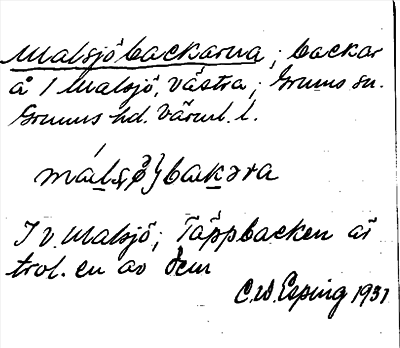 Malsjöbackarna; backar
å 1 Malsjö, västra; Grums sn.
Grums hd. Värml. l.
I v. Malsjö; Täppbacken är
trol. en av dem
C.W. Esping 1931